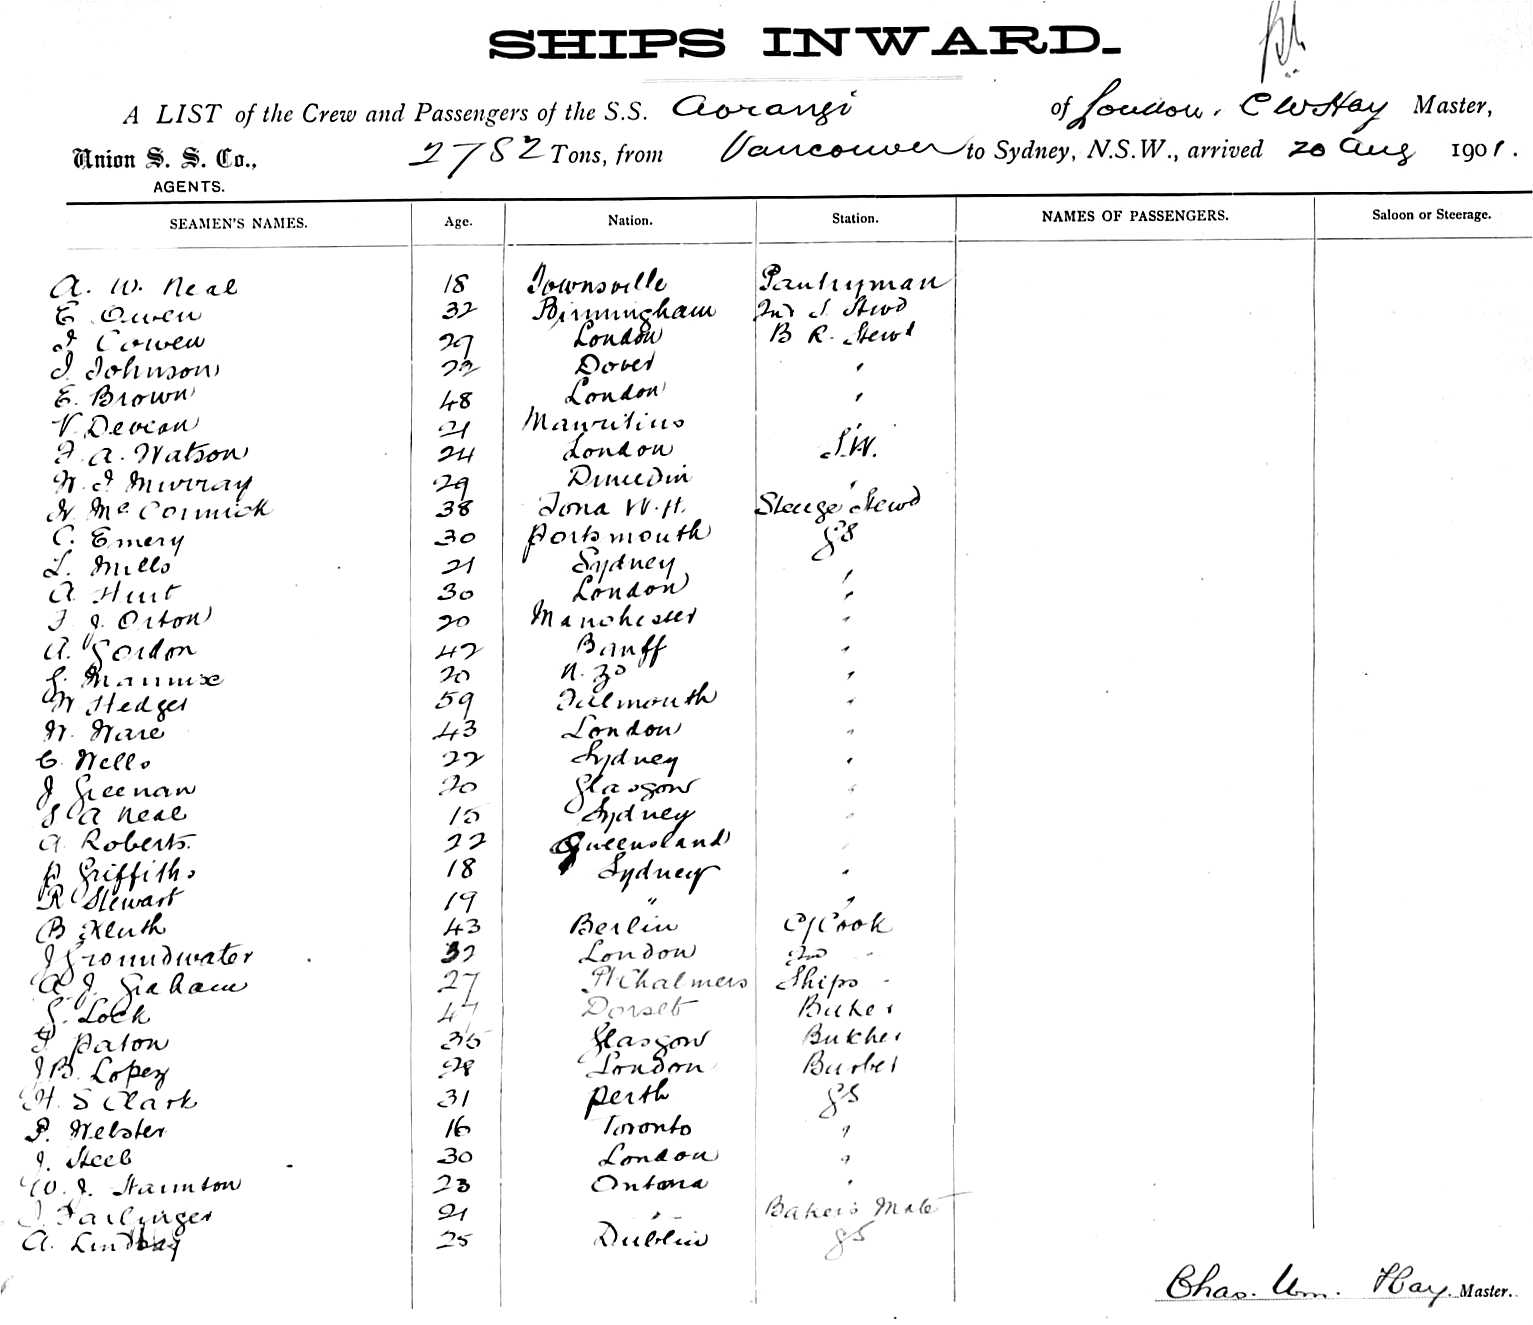 SHIPS INWARD.
A LIST of the Crew and Passengers of the S.S. Aorangi of London, C W Hay Master,
Union S. S. Co., 2782 Tons, from Vancouver to Sydney, N.S.W., arrived 20 Aug 1901.
AGENTS.
SEAMEN'S NAMES. Age. Nation. Station. NAMES OF PASSENGERS. Saloon or Steerage.
A. W. Neal 18 Townsville Pantryman
E Owen 32 Birmingham 2nd S. Stwd
J Cowen 29 London B R. Stewd
J. Johnson 22 Dover "
E. Brown 48 London "
V. Devean 21 Mauritius "
F. A. Watson 24 London S.W.
W. J Murray 29 Dunedin "
W. McCormick 38 Iona W.H. Steerge Stewd
C. Emery 30 Portsmouth GS
L. Mills 21 Sydney "
A Hunt 30 London "
F J. Orton 20 Manchester "
A. Gordon 42 Banff "
G. Mannix 20 N. Zd "
W Hedges 59 Falmouth "
W. Ware 43 London "
C. Wells 22 Sydney "
J Greenan 20 Glasgow "
S A Neal 15 Sydney "
A. Roberts. 22 Queensland "
P Griffiths 18 Sydney "
R Stewart 19 " "
B Kluth 43 Berlin Cf Cook
J Groundwater 32 London 2nd "
A J. Graham 27 Pt Chalmers Ships "
G. Lock 47 Dorset Baker
J Paton 35 Glasgow Butcher
J B. Lopez 28 London Barber
H. S Clark 31 Perth GS
P. Webster 16 Toronto "
J. Steel 30 London "
W. J. Staunton 23 Ontario "
21 " Baker's Mate
A. Lindsay 25 Dublin GS
Chas. Wm. Hay. Master.